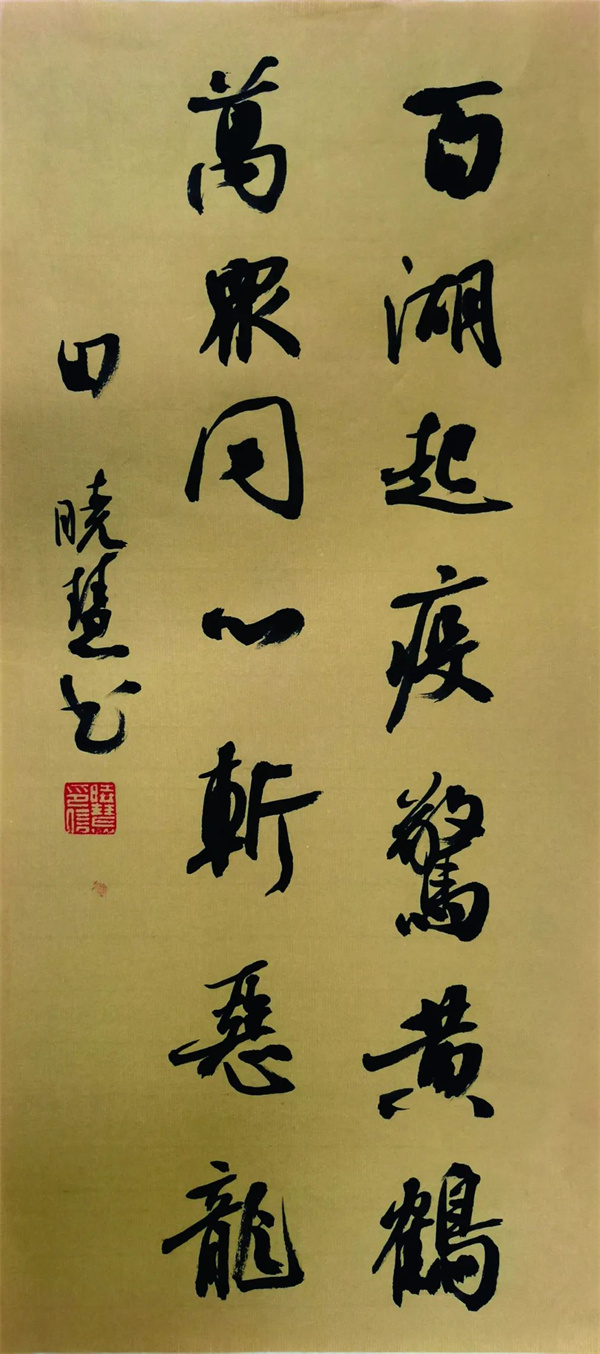 百湖起疫驚黄鶴
萬眾同心斬惡龍
田曉慧书
曉慧印信